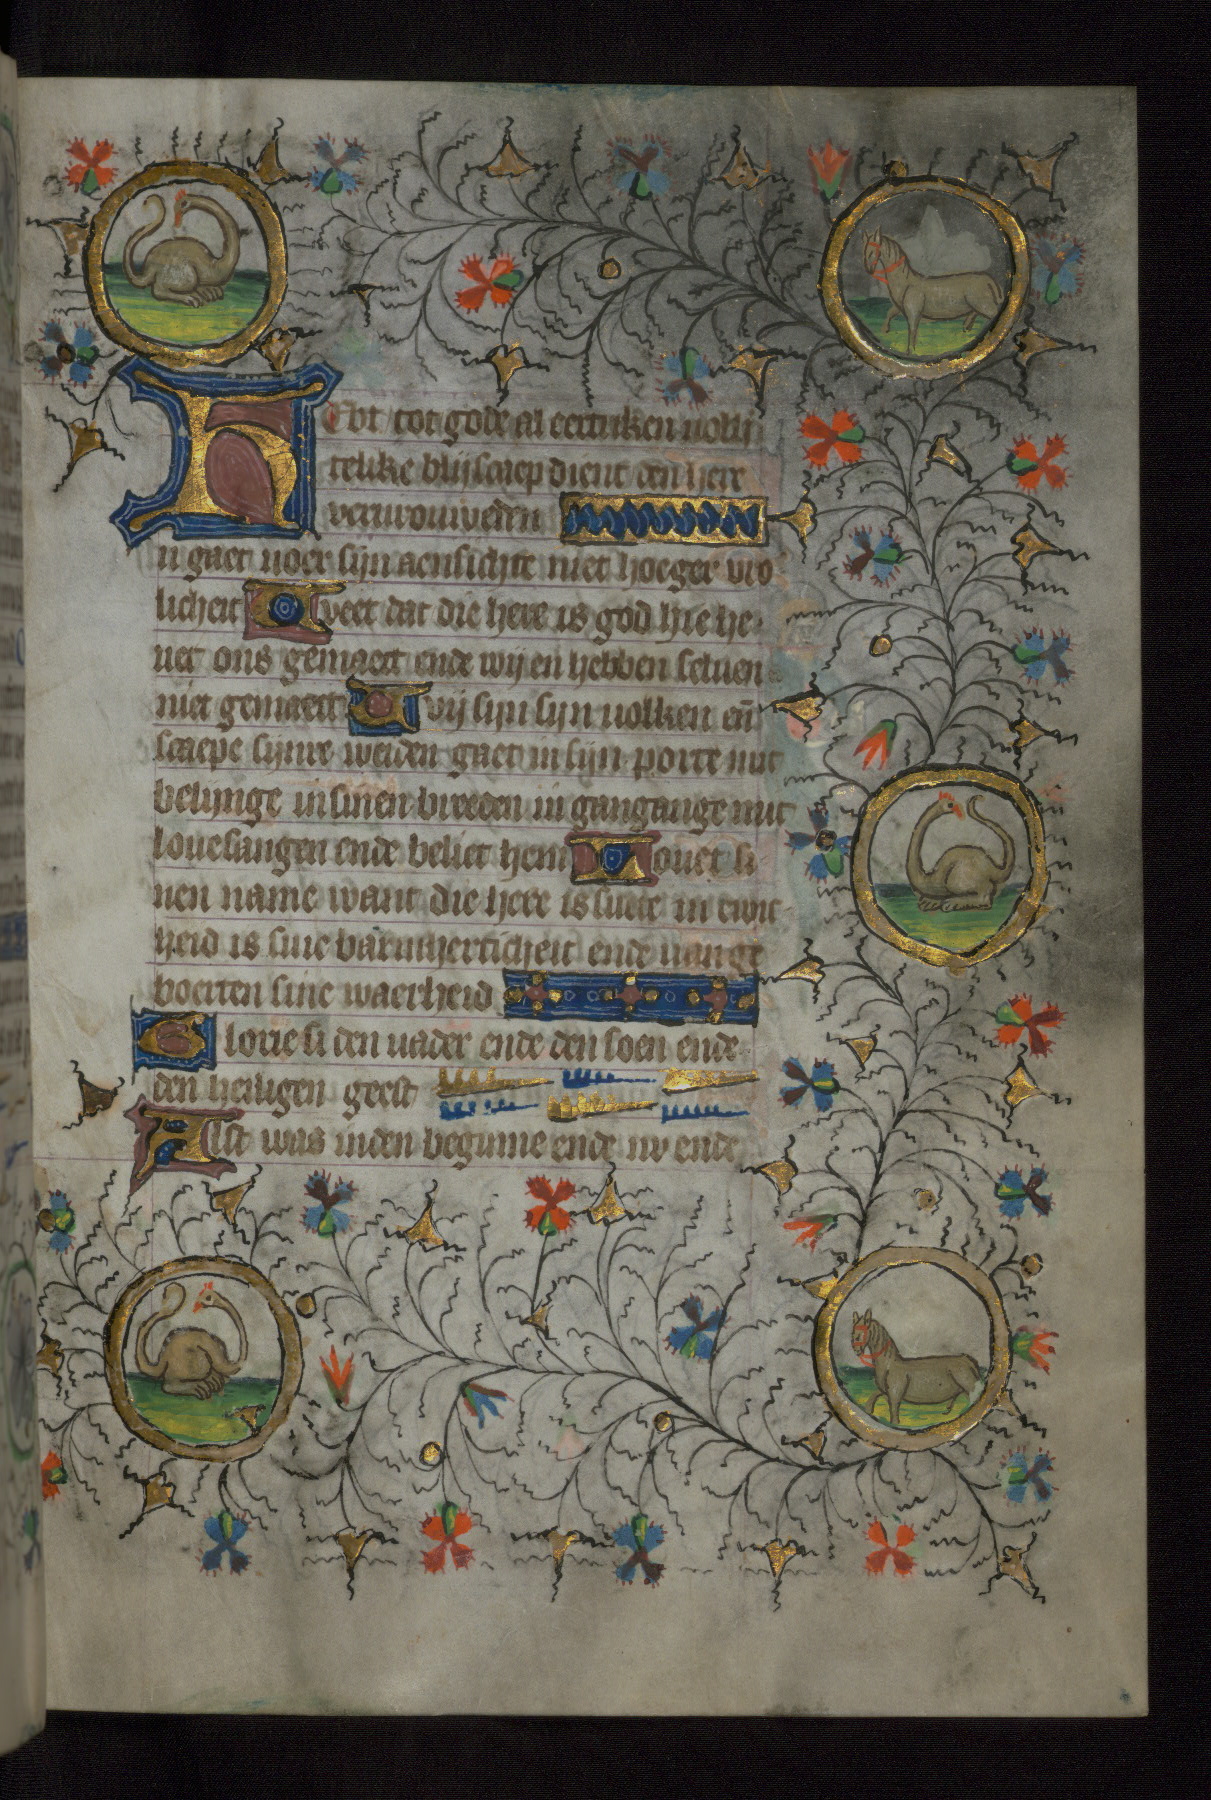 Hebt tot gode al eertriken volli
telike blijscaep dient den here
vervrouweden
n gaet voer sijn aensichte met hoeger vro
licheit Weet dat die here is god hie he
uet ons gemaect ende wij en hebben seluen
niet gemaect Wij sijn sijn uolken en̄
scaepe sijnre weiden gaet in sijn porte mit
belijnge in sinen breeden in gangange mit
louesangen ende beliet hem Louet si
nen name want die here is suete in ewic
heid is sine barmherticheit ende uan ge
boerten sine waerheid
Glorie si den uader ende den soen ende
den heiligen geest
Alst was inden beginne ende nv ende